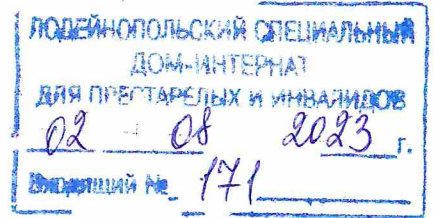 ЛОДЕЙНОПОЛЬСКИЙ СПЕЦИАЛЬНЫЙ
ДОМ-ИНТЕРНАТ
ДЛЯ ПРЕСТАРЕЛЫХ И ИНВАЛИДОВ
02 08 2023 г.
Входящий № 171